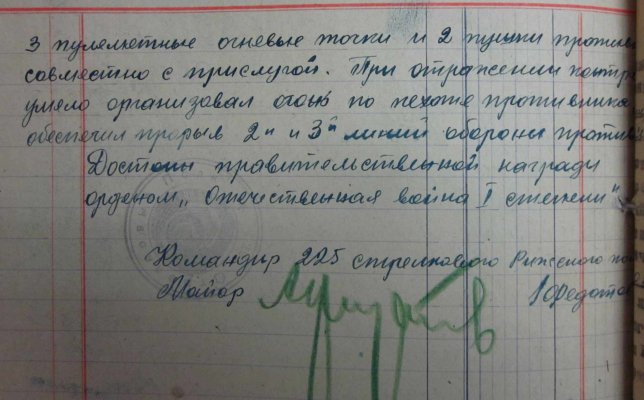 3 пулеметные огневые точки и 2 пушки против
совместно с прислугой. При отражении контр
умело организовал огонь по пехоте противника
обеспечил прорыв 2й и 3й линий обороны проти
Достоин правительственной награды
орденом „Отечественная война I степени"
Командир 225 стрелкового Рижского по
Майор /Федотов